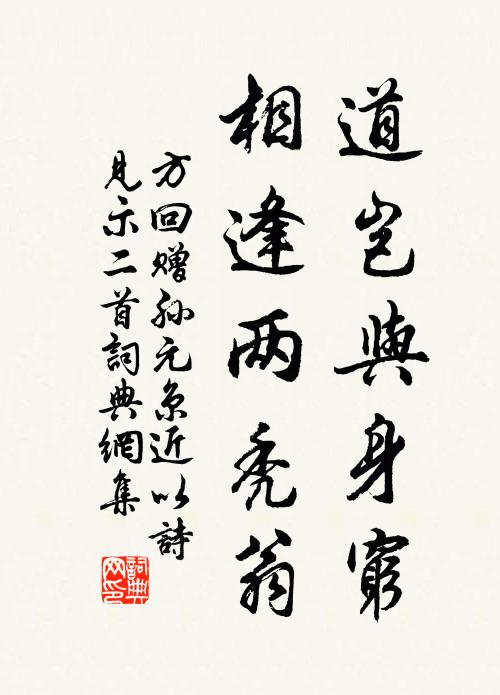 道豈與身窮
相逢两秃翁
方回赠孙元京近以詩
見示二首詞典網集
詞典
网印